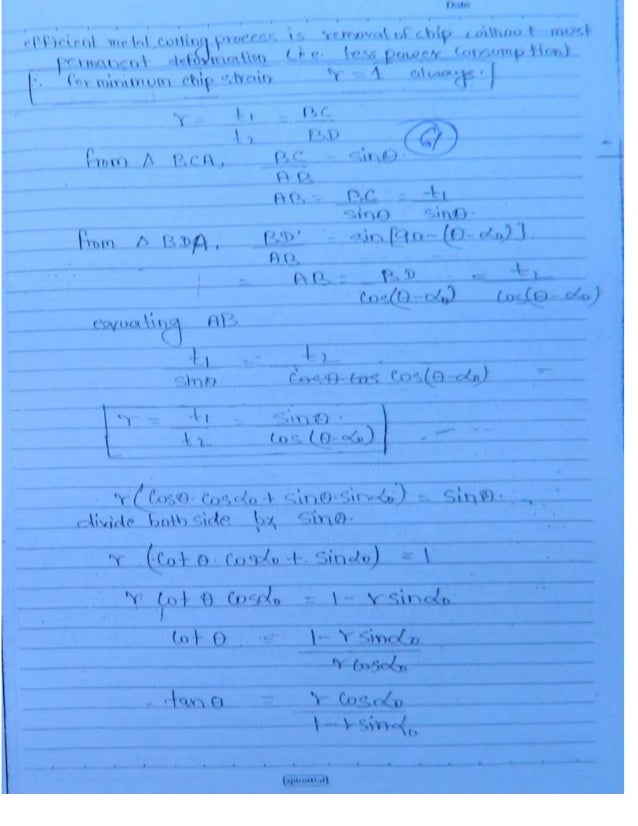 Date
efficient metal cutting process is removal of chip without must
permanent deformation (i.e. less power consumption)
[∵ for minimum chip strain r = 1 always.]
r = t₁/t₂ = BC/BD
61
from Δ BCA, BC/AB = sinθ.
AB = BC/sinθ = t₁/sinθ.
from Δ BDA, BD/AB = sin[90-(θ-α₀)]
= AB = BD/cos(θ-α₀) = t₂/cos(θ-α₀)
equating AB
t₁/sinθ = t₂/cos(θ-α₀)
r = t₁/t₂ = sinθ./cos(θ-α₀)
r(cosθ. cosα₀ + sinθ. sinα₀) = sinθ.
divide both side by sinθ.
r (cotθ. cosα₀ + sinα₀) = 1
r cotθ cosα₀ = 1 - r sinα₀
cotθ = 1 - r sinα₀/r cosα₀
tanθ = r cosα₀/1 - r sinα₀